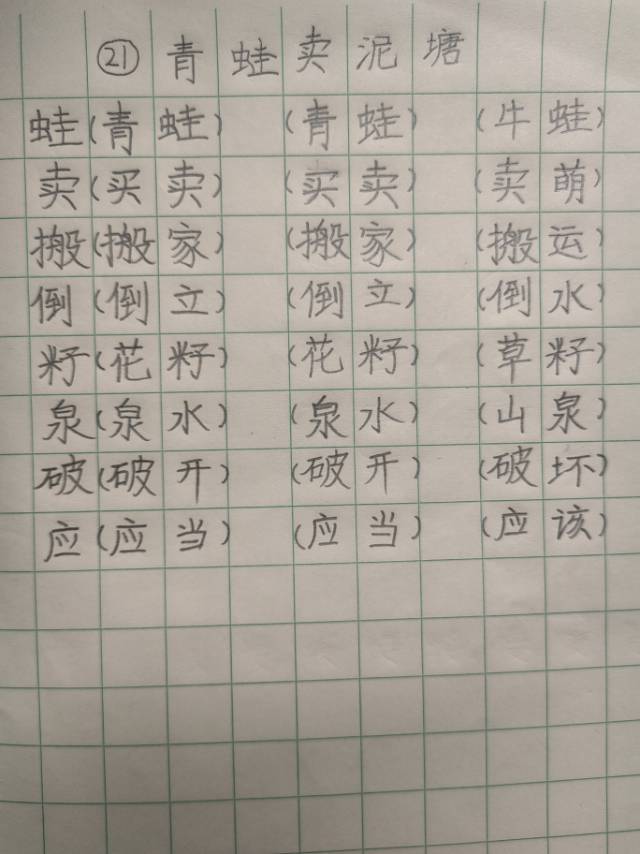 ㉑青蛙卖泥塘
蛙(青蛙) (青蛙) (牛蛙)
卖(买卖) (买卖) (卖萌)
搬(搬家) (搬家) (搬运)
倒(倒立) (倒立) (倒水)
籽(花籽) (花籽) (草籽)
泉(泉水) (泉水) (山泉)
破(破开) (破开) (破坏)
应(应当) (应当) (应该)